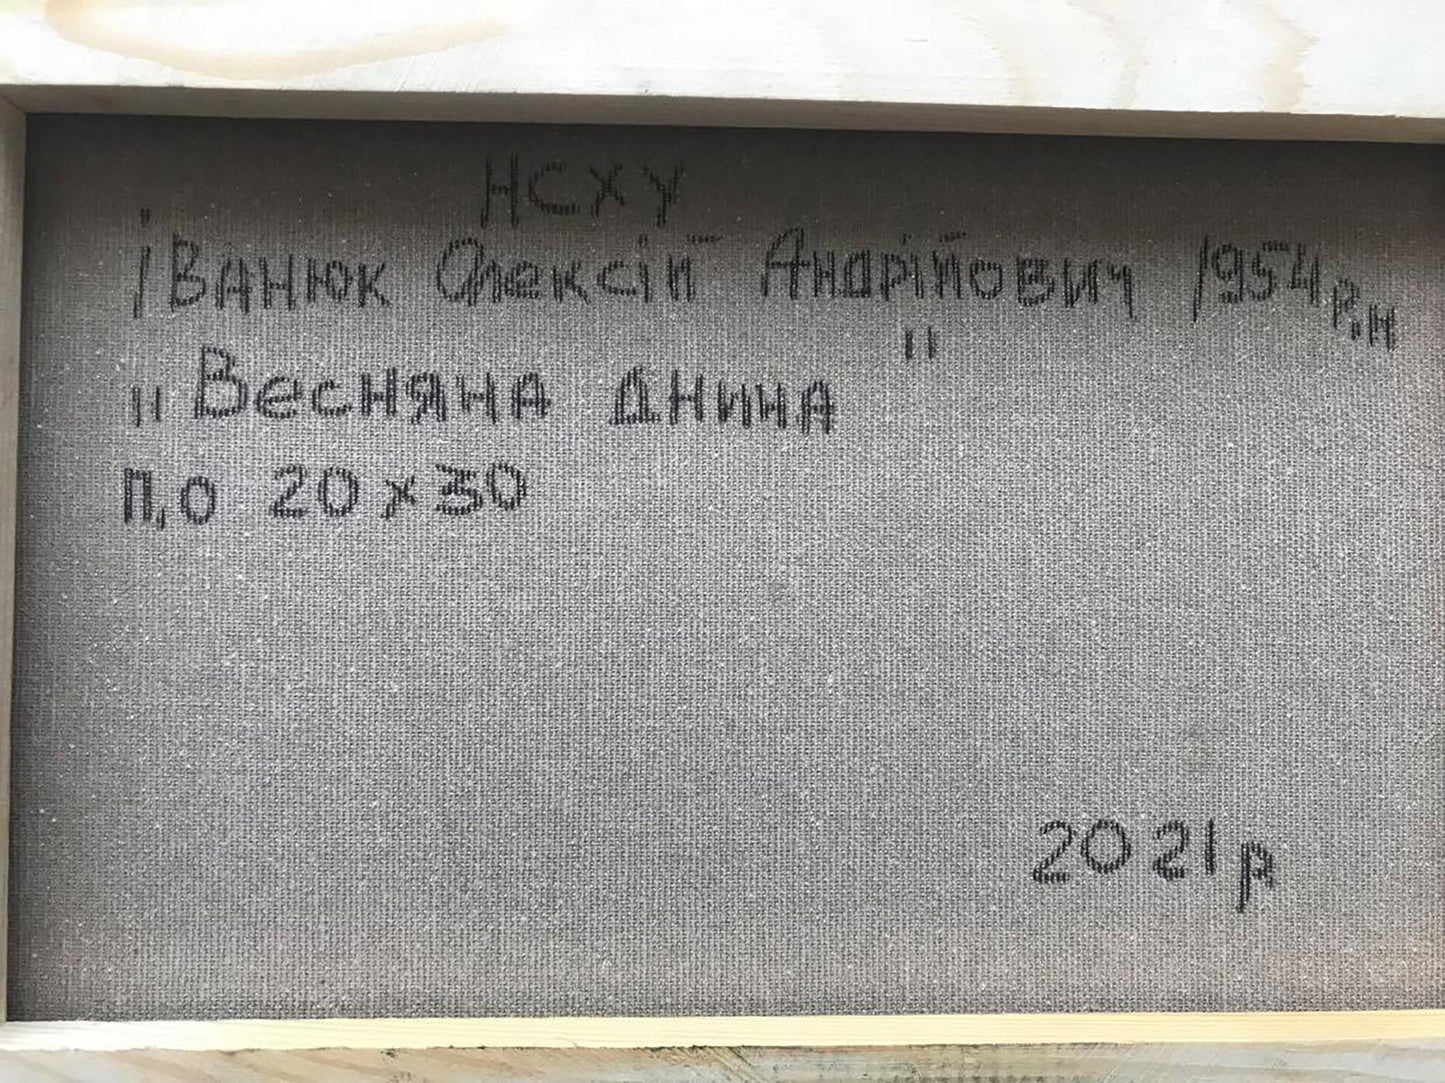 НСХУ
Іванюк Олексій Андрійович 1954 р.н
"Весняна днина"
п,о 20х30
2021р